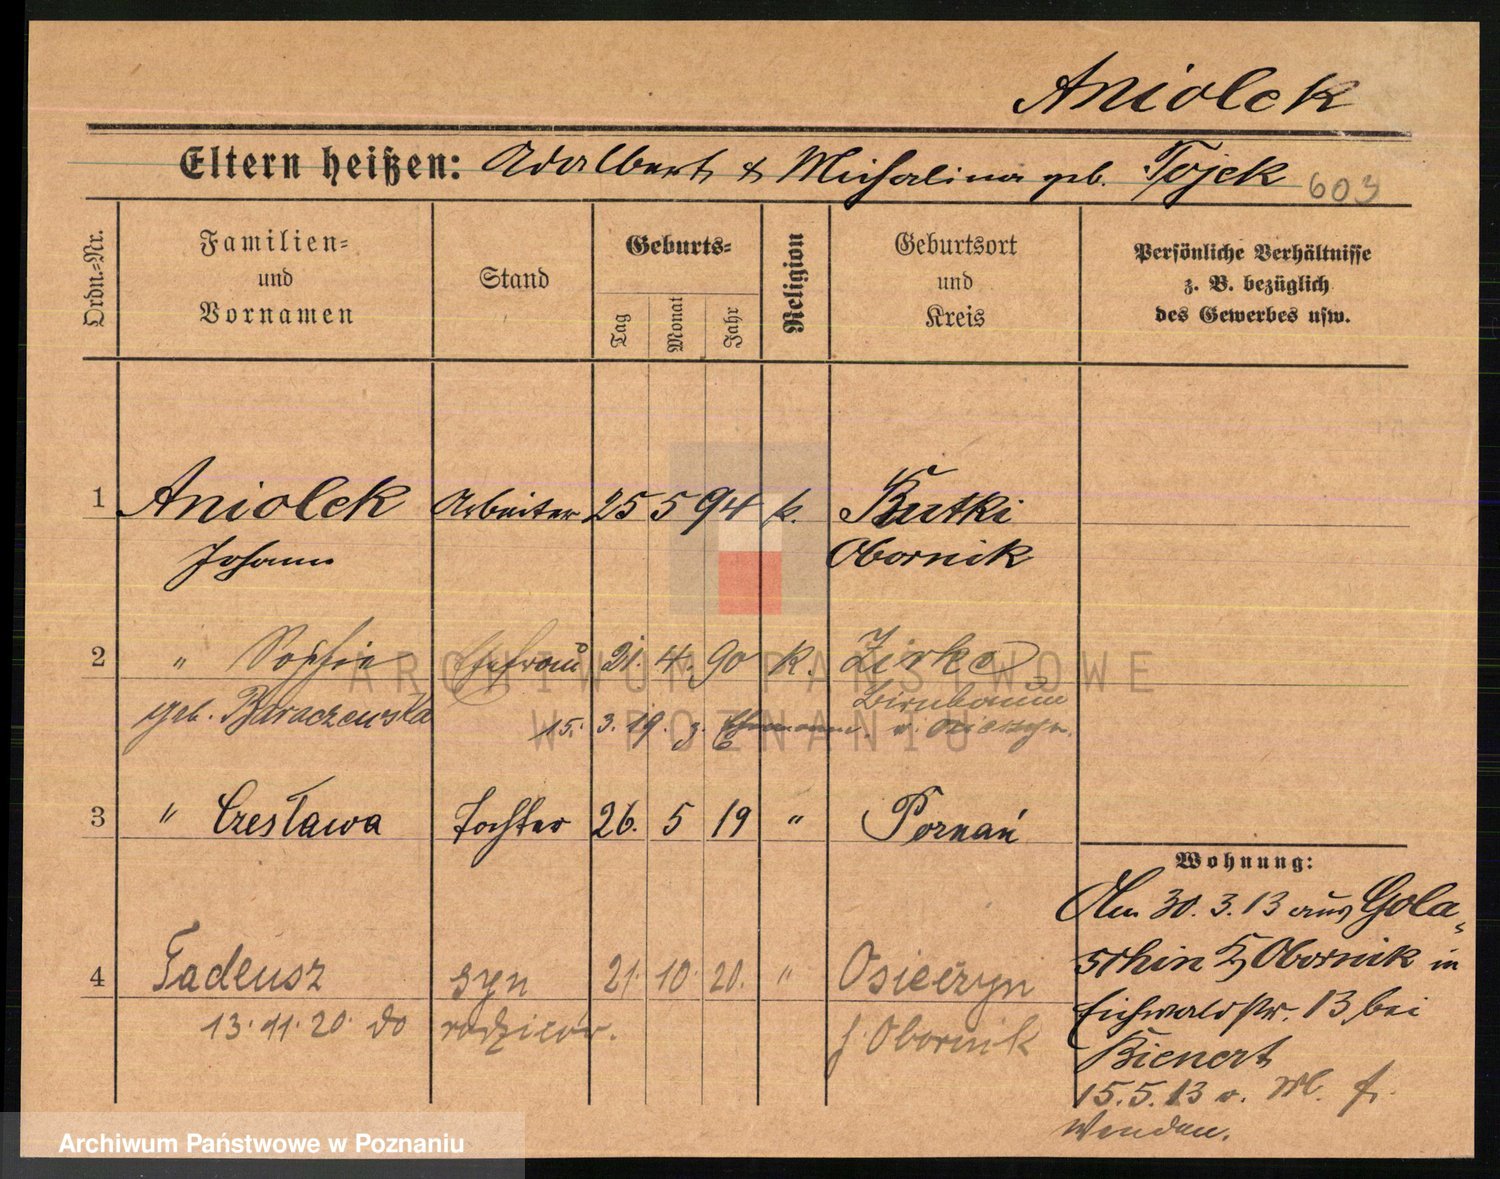 Aniolek
Eltern heißen: Adalbert & Michalina geb. Tojek 603
Ordn.=Nr.
Familien=
und
Vornamen
Stand
Geburts=
Tag
Monat
Jahr
Religion
Geburtsort
und
Kreis
Persönliche Verhältnisse
z. B. bezüglich
des Gewerbes usw.
1 Aniolek Arbeiter 25 5 94 k. Kutki
Johann Obornik
2 " Sophie Ehefrau 21. 4. 90 k. Zirke
geb. Baraczewska Birnbaum
15. 3. 19. z. Ehemann. v. Osieczyn.
3 " Czesława Tochter 26. 5 19 " Poznań
4 Tadeusz syn 21. 10. 20. " Osieczyn
13. 11. 20. do rodziców. Obornik
Wohnung:
Am 30. 3. 13 aus Gola=
schin Obornik in
Eichwaldstr. 13 bei
Bienert
15. 5. 13 v.
Wenden.
ARCHIWUM PAŃSTWOWE
W POZNANIU
Archiwum Państwowe w Poznaniu